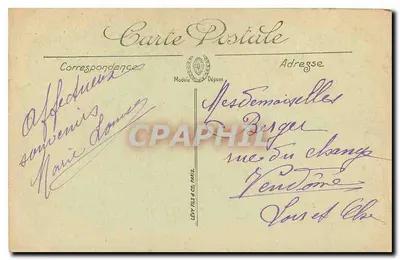 Carte Postale
Correspondance
Adresse
Modèle Déposé
Affectueux
souvenirs
Marie Louise
Mesdemoiselles
Berger
rue du change
Vendôme
Loir et Cher
CPAPHIL
LÉVY FILS & CO, PARIS.